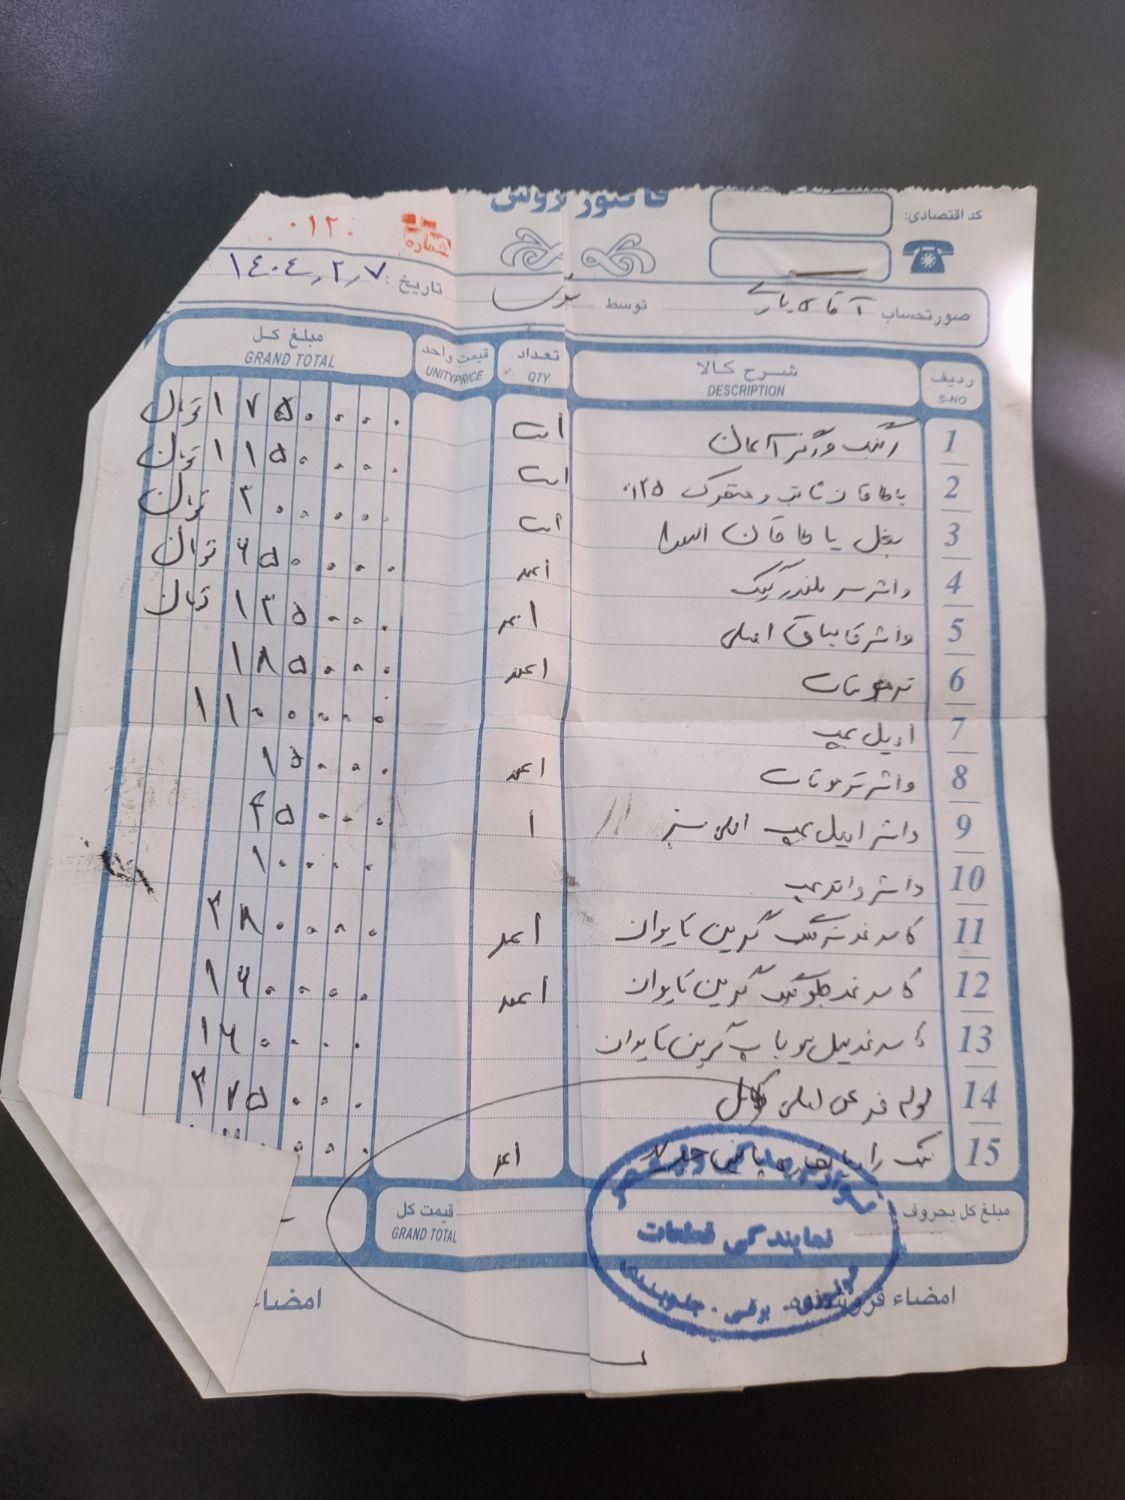 فاکتور فروش
کد اقتصادی:
شماره ۰۱۲۰
تاریخ: ۱۴۰۴,۲,۷
صورتحساب آقای توسط
ردیف S-NO شرح کالا DESCRIPTION تعداد QTY قیمت واحد UNITYPRICE مبلغ کل GRAND TOTAL
1 رینگ ۱۷۵۰۰۰۰ تومان
2 یاطاقان ثابت و متحرک ۰۱۲۵ ۱۱۵۰۰۰۰ تومان
3 بغل یاطاقان ۳۰۰۰۰۰ تومان
4 واشر سر سلندر ۶۵۰۰۰۰ تومان
5 واشر قالپاق اصلی ۱ عدد ۱۳۵۰۰۰ تومان
6 ترموستات ۱ عدد ۱۸۵۰۰۰
7 اویل پمپ ۱۱۰۰۰۰۰
8 واشر ترموستات ۱ عدد ۱۵۰۰۰
9 واشر اویل پمپ اصلی سبز ۱ ۴۵۰۰۰
10 واشر واتر پمپ ۱۰۰۰۰
11 کاسه نمد ته میلنگ گرین تایوان ۱ عدد ۳۸۰۰۰۰
12 کاسه نمد جلو میلنگ گرین تایوان ۱ عدد ۱۶۰۰۰۰
13 کاسه نمد میل سوپاپ گرین تایوان ۱۶۰۰۰۰
14 لوله فرعی اصلی کامل ۳۷۵۰۰۰
15 ۱ عدد
مبلغ کل بحروف
قیمت کل
GRAND TOTAL
نمایندگی قطعات
موتوری . برقی . جلوبندی
امضاء فروشنده
امضاء